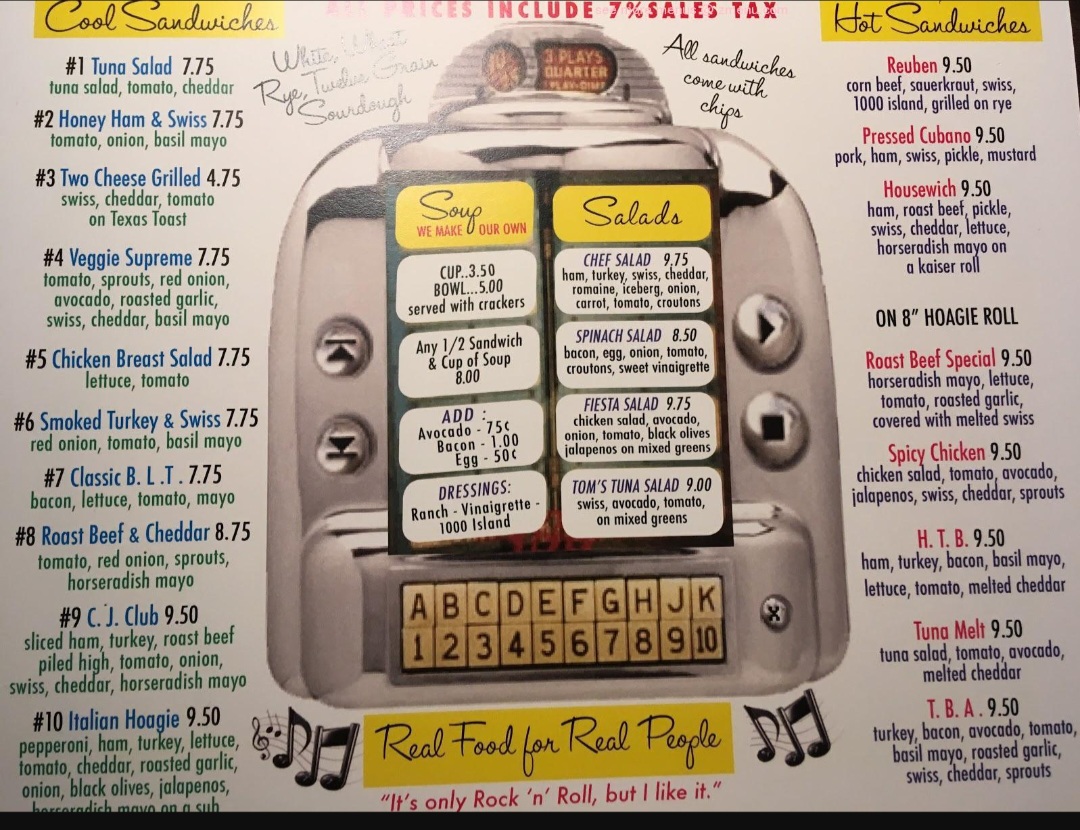 ALL PRICES INCLUDE 7% SALES TAX
Cool Sandwiches
#1 Tuna Salad 7.75
tuna salad, tomato, cheddar
#2 Honey Ham & Swiss 7.75
tomato, onion, basil mayo
#3 Two Cheese Grilled 4.75
swiss, cheddar, tomato
on Texas Toast
#4 Veggie Supreme 7.75
tomato, sprouts, red onion,
avocado, roasted garlic,
swiss, cheddar, basil mayo
#5 Chicken Breast Salad 7.75
lettuce, tomato
#6 Smoked Turkey & Swiss 7.75
red onion, tomato, basil mayo
#7 Classic B. L .T . 7.75
bacon, lettuce, tomato, mayo
#8 Roast Beef & Cheddar 8.75
tomato, red onion, sprouts,
horseradish mayo
#9 C. J. Club 9.50
sliced ham, turkey, roast beef
piled high, tomato, onion,
swiss, cheddar, horseradish mayo
#10 Italian Hoagie 9.50
pepperoni, ham, turkey, lettuce,
tomato, cheddar, roasted garlic,
onion, black olives, jalapenos,
horseradish mayo on a sub
White, Wheat
Rye, Twelve Grain
Sourdough
3 PLAYS
QUARTER
1 PLAY-DIME
All sandwiches
come with
chips
Soup
WE MAKE OUR OWN
CUP..3.50
BOWL...5.00
served with crackers
Any 1/2 Sandwich
& Cup of Soup
8.00
ADD :
Avocado - 75¢
Bacon - 1.00
Egg - 50¢
DRESSINGS:
Ranch - Vinaigrette -
1000 Island
Salads
CHEF SALAD 9.75
ham, turkey, swiss, cheddar,
romaine, iceberg, onion,
carrot, tomato, croutons
SPINACH SALAD 8.50
bacon, egg, onion, tomato,
croutons, sweet vinaigrette
FIESTA SALAD 9.75
chicken salad, avocado,
onion, tomato, black olives
jalapenos on mixed greens
TOM'S TUNA SALAD 9.00
swiss, avocado, tomato,
on mixed greens
A B C D E F G H J K
1 2 3 4 5 6 7 8 9 10
X
Real Food for Real People
"It's only Rock 'n' Roll, but I like it."
Hot Sandwiches
Reuben 9.50
corn beef, sauerkraut, swiss,
1000 island, grilled on rye
Pressed Cubano 9.50
pork, ham, swiss, pickle, mustard
Housewich 9.50
ham, roast beef, pickle,
swiss, cheddar, lettuce,
horseradish mayo on
a kaiser roll
ON 8" HOAGIE ROLL
Roast Beef Special 9.50
horseradish mayo, lettuce,
tomato, roasted garlic,
covered with melted swiss
Spicy Chicken 9.50
chicken salad, tomato, avocado,
jalapenos, swiss, cheddar, sprouts
H. T. B. 9.50
ham, turkey, bacon, basil mayo,
lettuce, tomato, melted cheddar
Tuna Melt 9.50
tuna salad, tomato, avocado,
melted cheddar
T. B. A . 9.50
turkey, bacon, avocado, tomato,
basil mayo, roasted garlic,
swiss, cheddar, sprouts